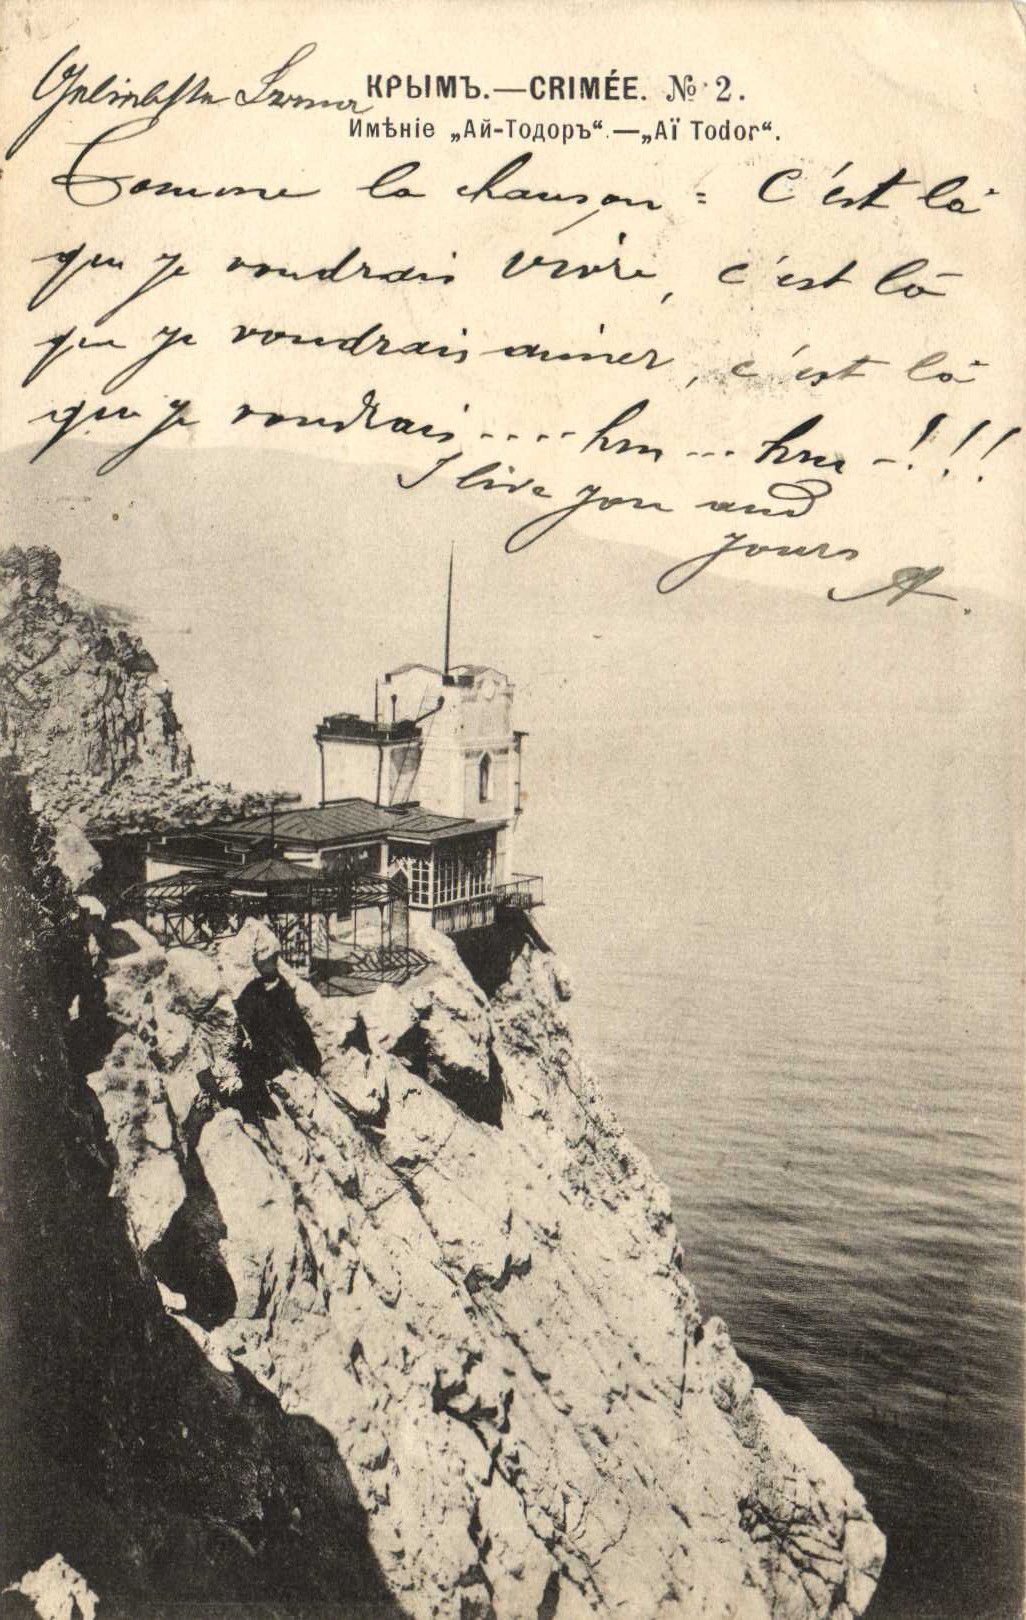 КРЫМЪ.—CRIMÉE. № 2.
Имѣніе „Ай-Тодоръ“.—„Aï Todor“.
Geliebste
Comme la chanson = C'est là
que je voudrais vivre, c'est là
que je voudrais aimer, c'est là
que je voudrais .... hm ... hm -!!!
I live you and
yours
A.